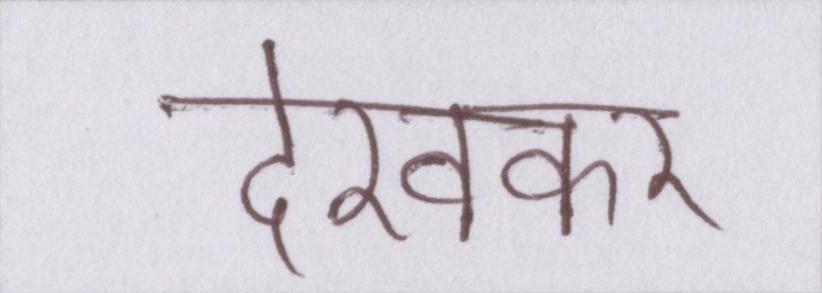 देखकर